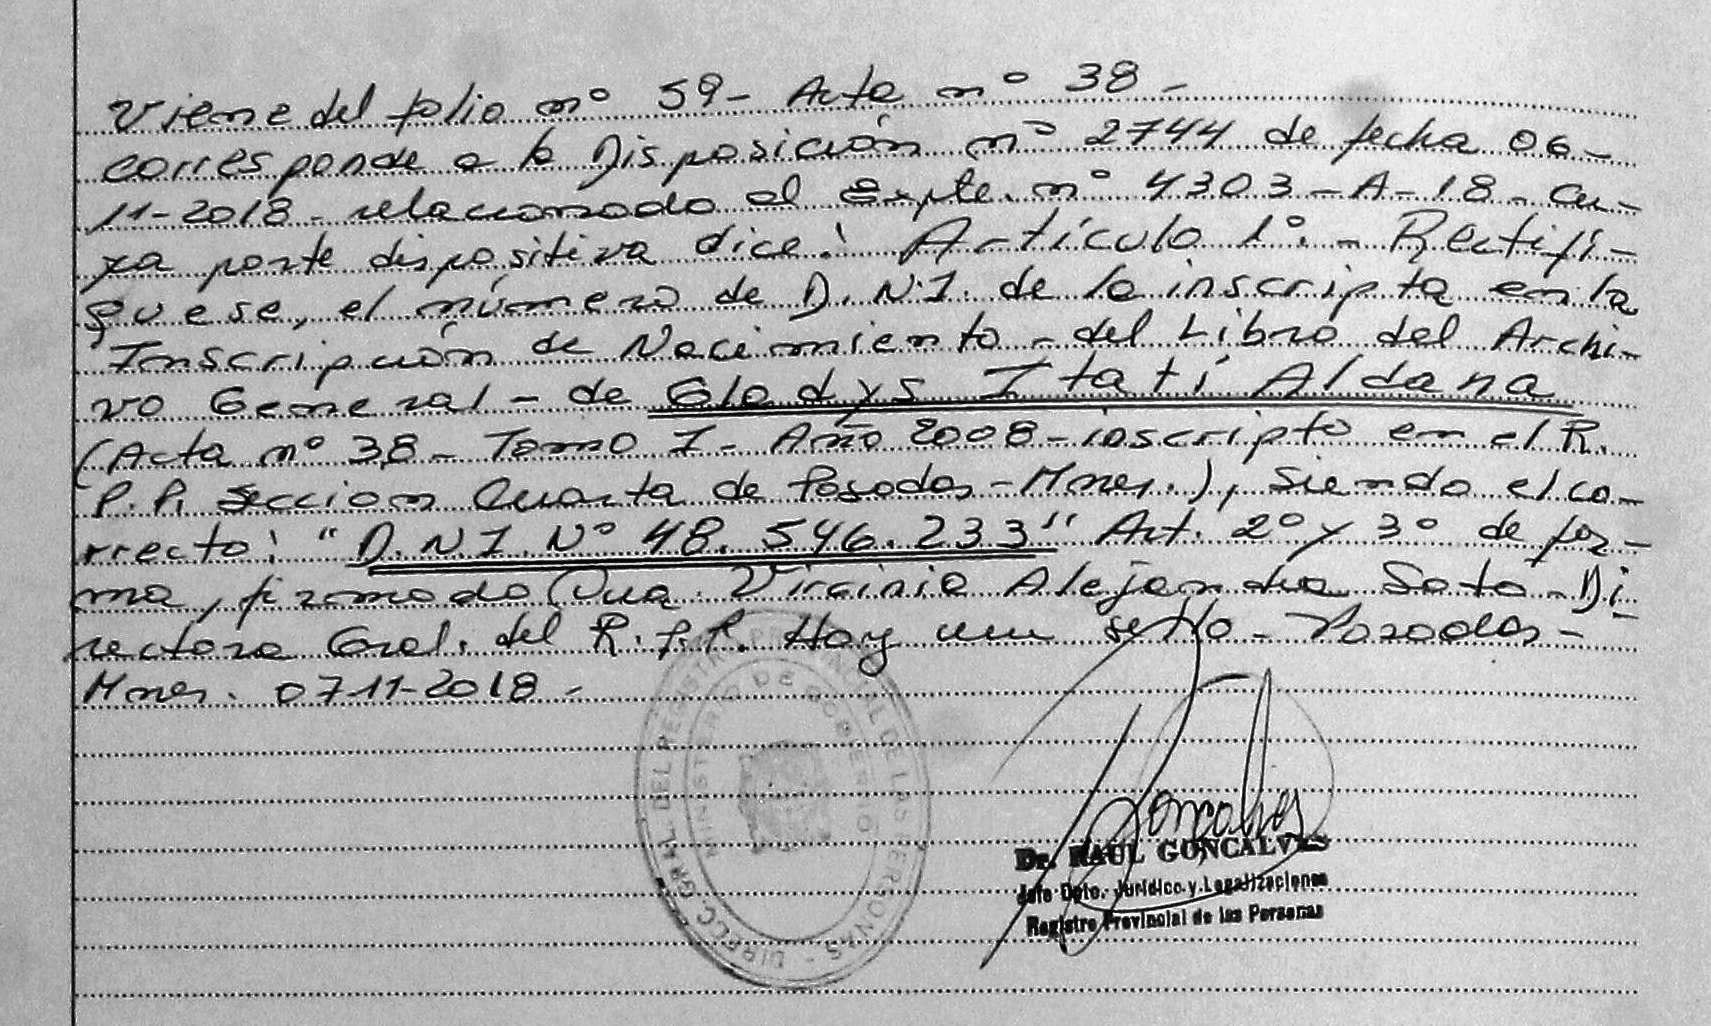 Viene del folio nº 59 - Acta nº 38 -
corresponde a la Disposición nº 2744 de fecha 06 -
11-2018 - relacionado al Expte. nº 4303 - A - 18 - Cu -
ya parte dispositiva dice: Artículo 1º. - Rectifí -
quese, el número de D.N.I. de la inscripta en la
Inscripción de Nacimiento - del Libro del Archi -
vo General - de Gladys Itatí Aldana
(Acta nº 38 - Tomo I - Año 2008 - inscripto en el R.
P.P. Seccion Cuarta de Posadas - Mnes.), Siendo el co -
rrecto: "D.N.I. Nº 48.546.233" Art. 2º y 3º de for -
ma, firmado Dra. Virginia Alejandra Soto - Di -
rectora Gral. del R.P.P. Hay un sello - Posadas -
Mnes. 07-11-2018 -
DIRECC. GRAL. DEL REGISTRO PROVINCIAL DE LAS PERSONAS -
MINISTERIO DE GOBIERNO
Goncalves
Dr. RAUL GONCALVES
Jefe Dpto. Jurídico y Legalizaciones
Registro Provincial de las Personas